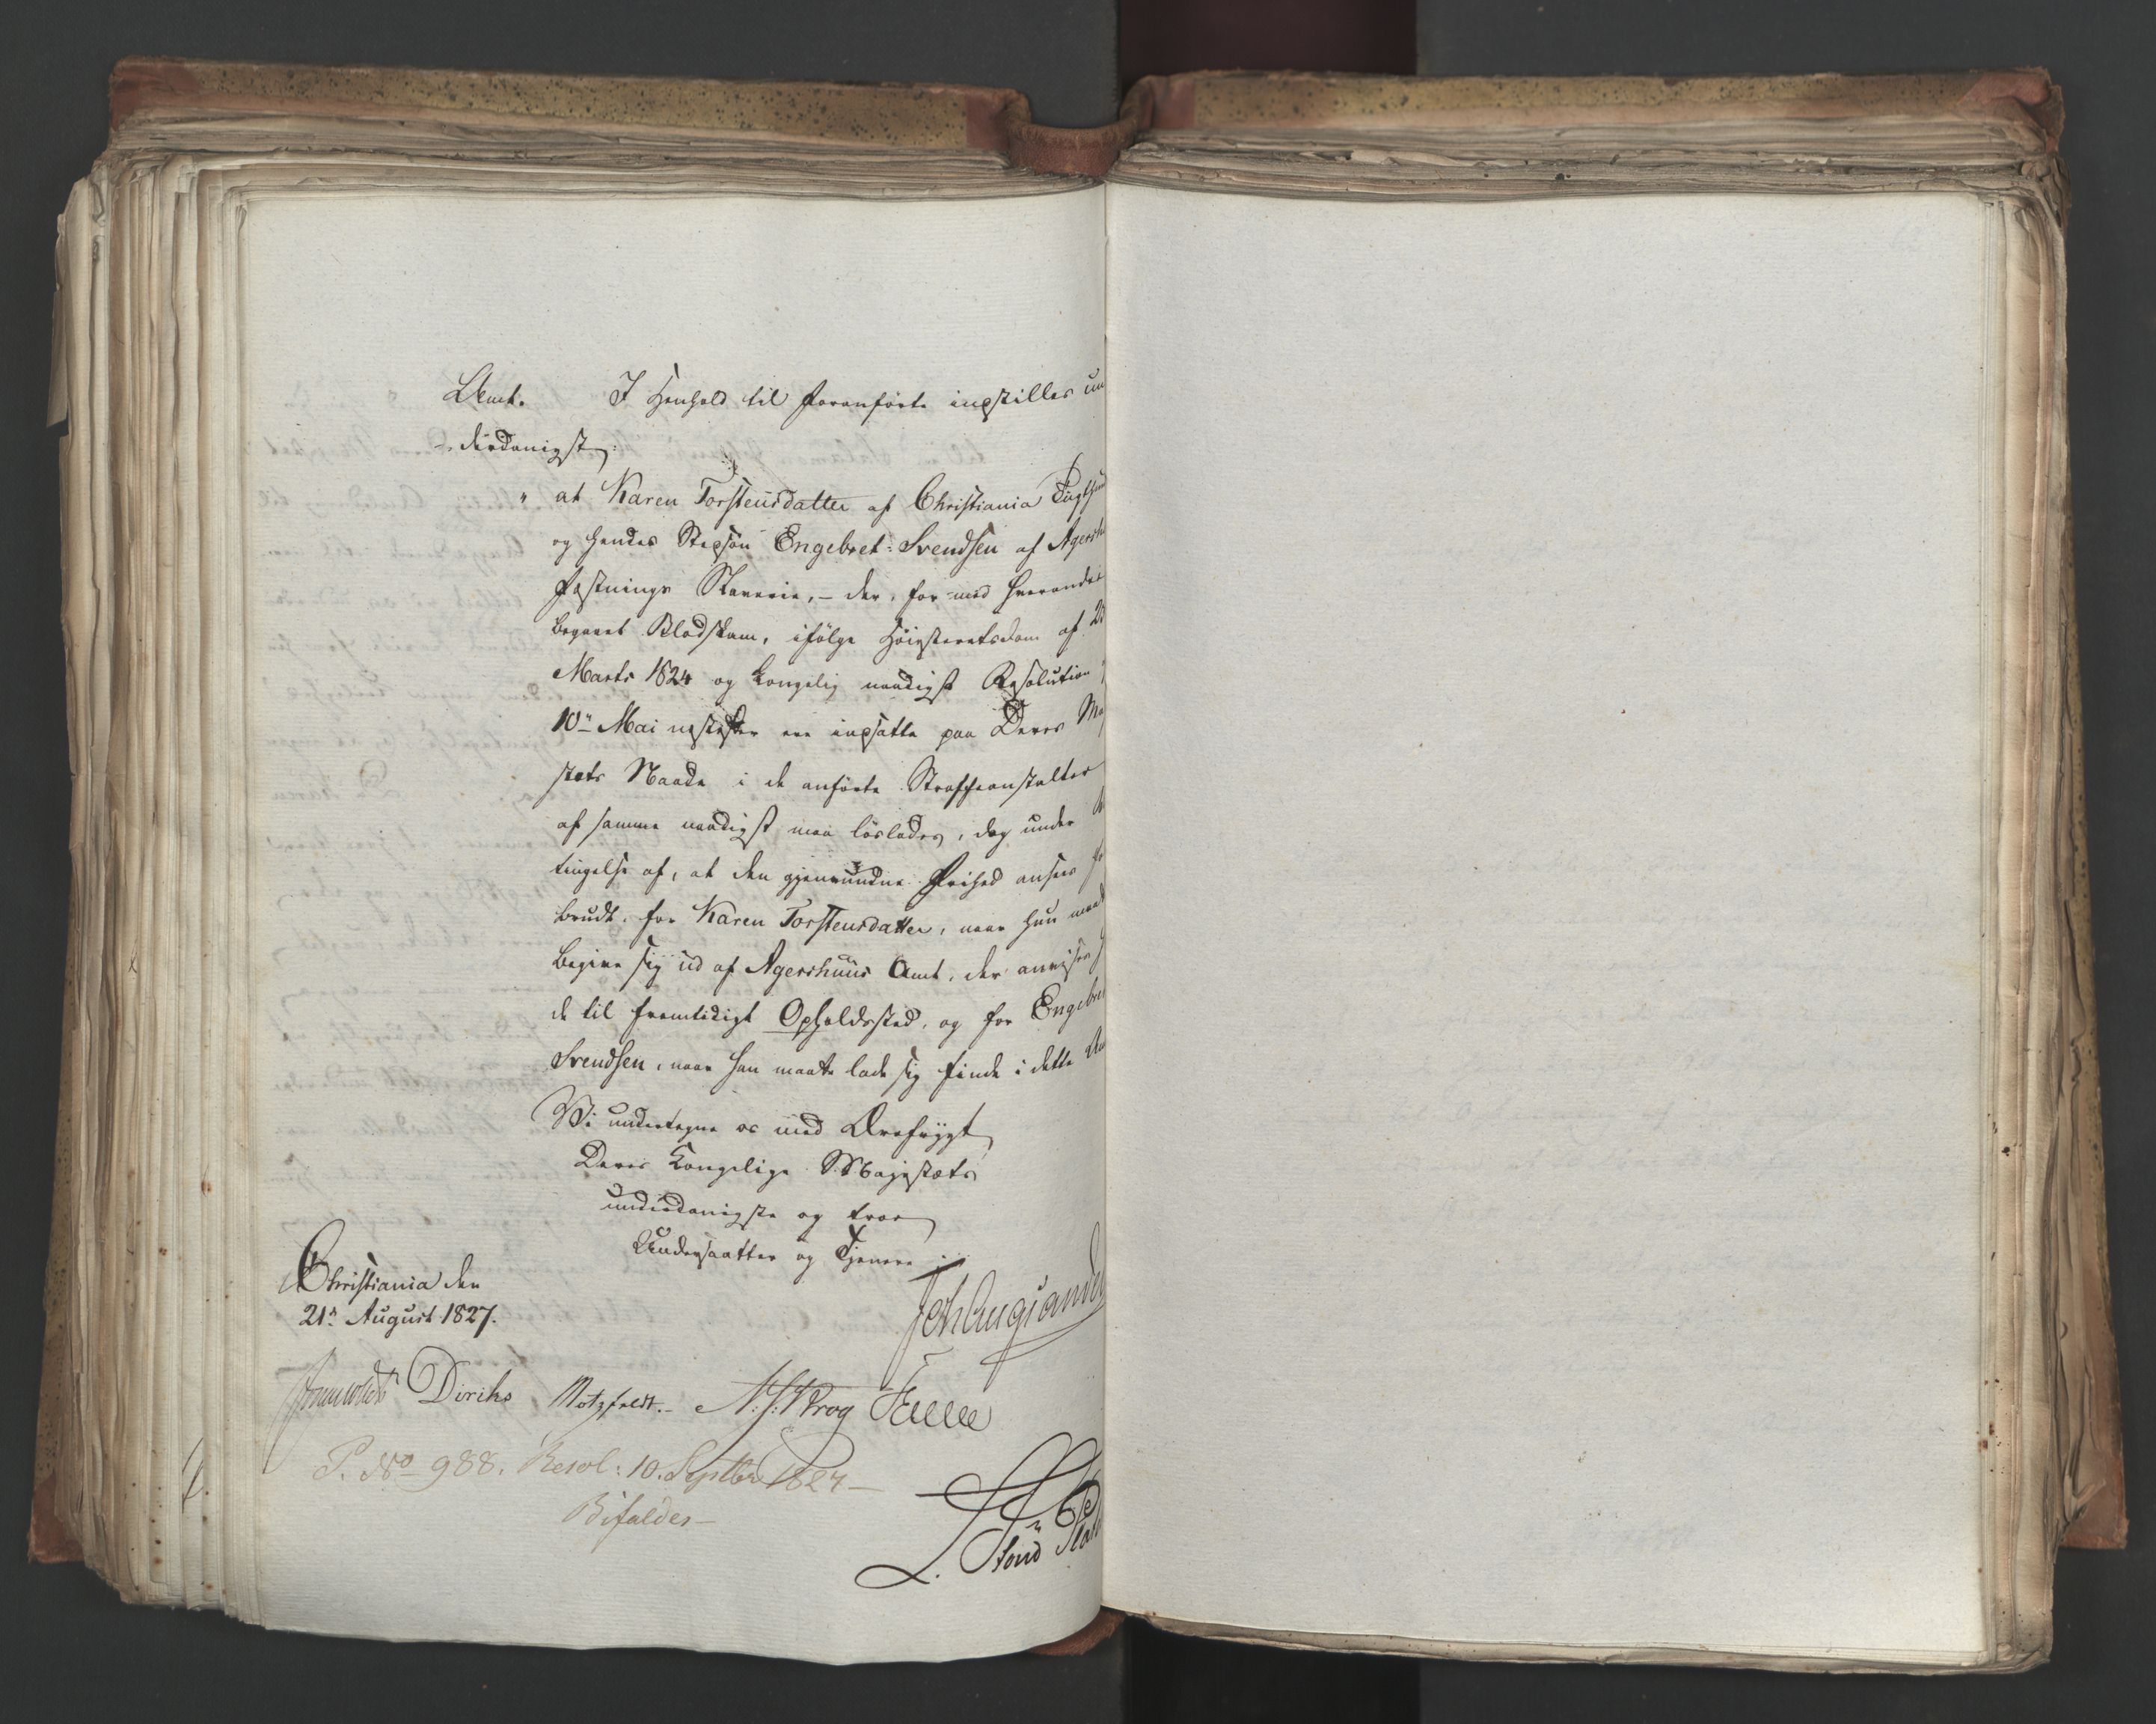 Amt. I Henhold til foranførte indstilles un
- derdanigst:
" at Karen Torstensdatter af Christiania Tugthuus
og hendes Stepsøn Engebret Svendsen af Agersh
Fæstnings Slaverie, - der, for med hverandre
begaaet Blodskam, ifølge Høiesteretsdom af 2
Marts 1824 og Kongelig naadigst Resolution
10de Mai næstefter ere indsatte paa Deres Ma
stæts Naade i de anførte Straffeanstalter
af samme naadigst maa løslades, dog under B
tingelse af, at den gjenvundne Frihed ansees for
brudt, for Karen Torstensdatter, naar hun maat
begive sig ud af Agershuus Amt, der anvises h
de til fremtidigt Opholdssted, og for Engebre
Svendsen, naar han maatte lade sig finde i dette Am
Vi undertegne os med Ærefrygt
Deres Kongelige Majestæts
underdanigste og troe
Undersaatter og Tjenere
Christiania den
21de August 1827.
Joh Aug Sandel
Diriks Motzfeldt. N: J: Krog Fasting
P. No 988. Resol: 10. Septbr 1827 -
Bifaldes -
L.